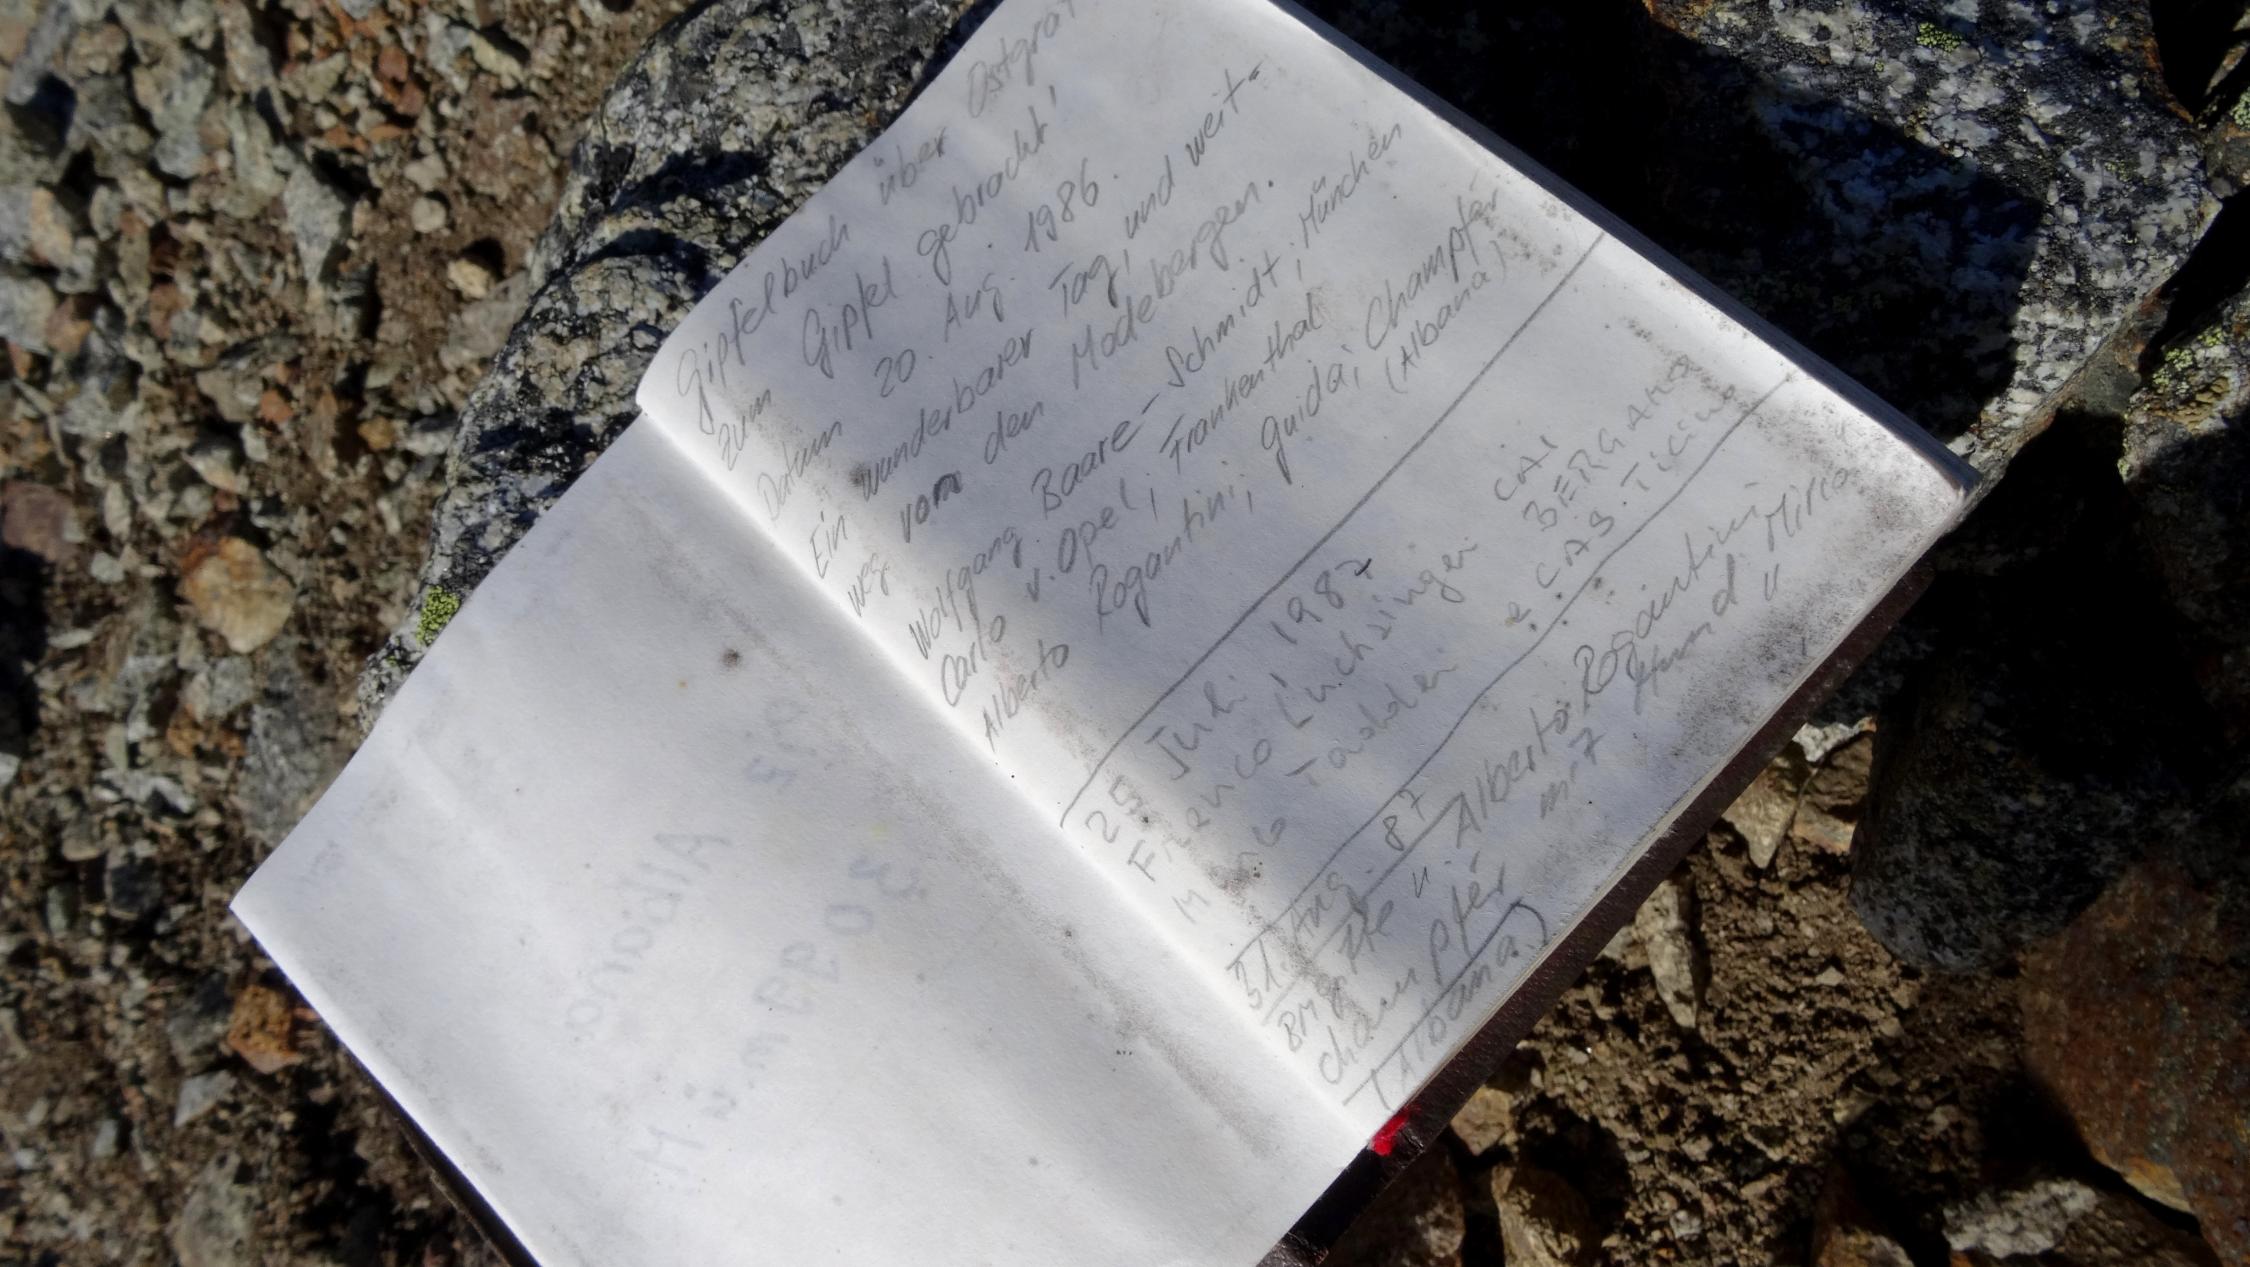 Gipfelbuch über Ostgrat
zum Gipfel gebracht!
Datum 20. Aug. 1986.
Ein wunderbarer Tag, und weit-
weg vom den Modebergen.
Wolfgang Baare-Schmidt, München
Carlo v. Opel, Frankenthal
Alberto Rogantini, guida, Champfèr
(Albana)
25 Juli 1987
Franco Luchsinger CAI
BERGAMO
Taddei e CAS. Ticino
31. Aug. 87
Alberto Rogantini
Champfèr mr 7 Hund "Miria"
(Albana)